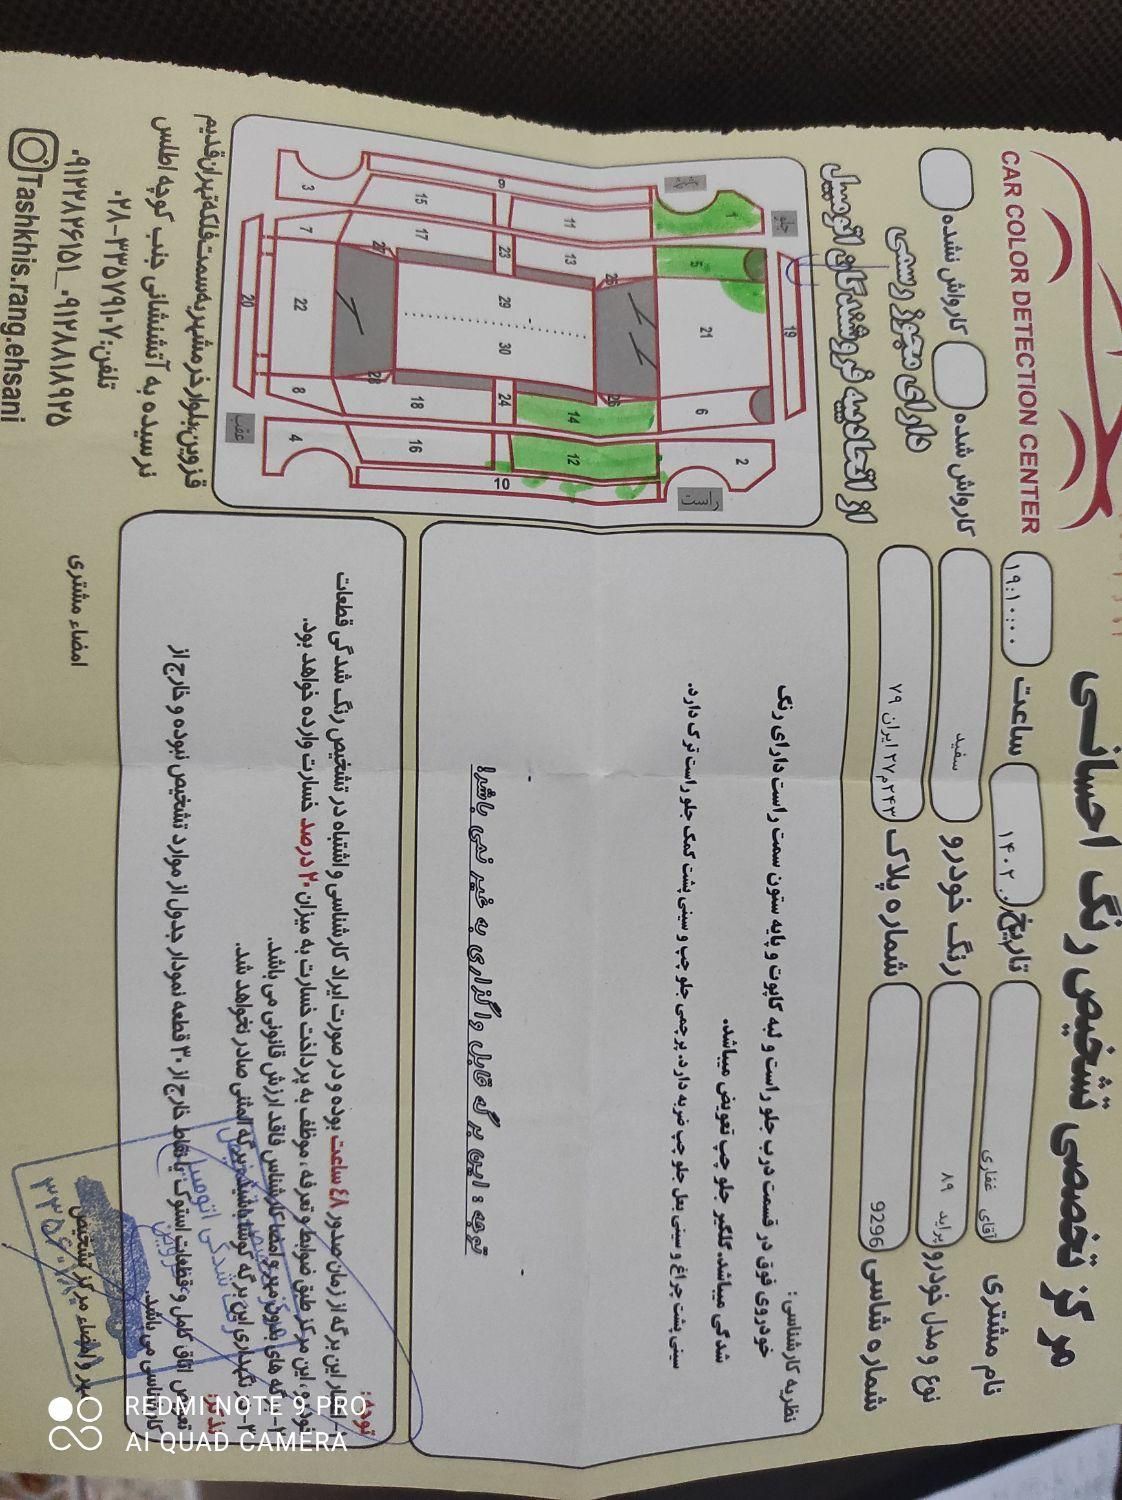 مرکز تخصصی تشخیص رنگ احسانی
CAR COLOR DETECTION CENTER
نام مشتری آقای غفاری
تاریخ ۱۴۰۲
ساعت ۱۹:۱۰:۰۰
نوع و مدل خودرو پراید ۸۹
رنگ خودرو سفید
کارواش شده
کارواش نشده
شماره شاسی 9296
شماره پلاک ۲۴۳م۲۷ ایران ۷۹
دارای مجوز رسمی
از اتحادیه فروشندگان اتومبیل
نظریه کارشناسی:
خودروی فوق در قسمت درب جلو راست و لبه کاپوت و پایه ستون سمت راست دارای رنگ
شدگی میباشد. گلگیر جلو چپ تعویض میباشد.
سینی پشت چراغ و سینی بغل جلو چپ ضربه دارد. پرچمی جلو چپ و سینی پشت کمک جلو راست ترک دارد.
توجه: این برگه قابل واگذاری به غیر نمی باشد!
جلو
چپ
راست
عقب
1
2
3
4
5
6
7
8
9
10
11
12
13
14
15
16
17
18
19
20
21
22
23
24
26
27
28
29
30
توجه:
اعتبار این برگه از زمان صدور ۴۸ ساعت بوده و در صورت ایراد کارشناسی و اشتباه در تشخیص رنگ شدگی قطعات
خودرو، این مرکز طبق ضوابط و تعرفه، موظف به پرداخت خسارت به میزان ۲۰ درصد خسارت وارده خواهد بود.
۲- برگه های بدون مهر و امضا کارشناس فاقد ارزش قانونی می باشد.
۳- در نگهداری این برگه کوشا باشید برگه المثنی صادر نخواهد شد.
تعویض اتاق کامل و قطعات استوک یا نقاط خارج از ۳۰ قطعه نمودار جدول از موارد تشخیص نبوده و خارج از
کارشناسی می باشد.
مهر و امضاء مرکز تشخیص
امضاء مشتری
قزوین، بلوار خرمشهر به سمت فلکه تهران قدیم
نرسیده به آتشنشانی جنب کوچه اطلس
تلفن: ۰۲۸-۳۳۵۷۹۱۰۷
۰۹۱۲۷۸۲۶۱۵۱_۰۹۱۲۷۸۸۱۸۹۲۵
Tashkhis.rang.ehsani
REDMI NOTE 9 PRO
AI QUAD CAMERA